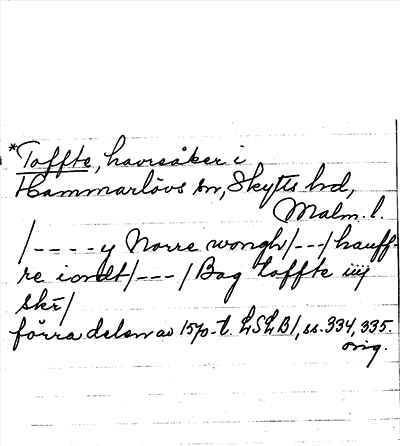 *Toffte, havreåker i
Hammarlövs sn, Skytts hd,
Malm. l.
/----y Norre wongh/---/hauff-
re iordt/---/Bag toffte iiij
skr/
förra delen av 1570-t. LSLB1, ss. 334, 335.
orig.